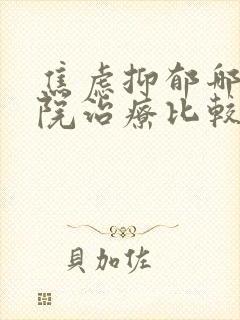 焦虑抑郁那
院治療比較
貝加佐